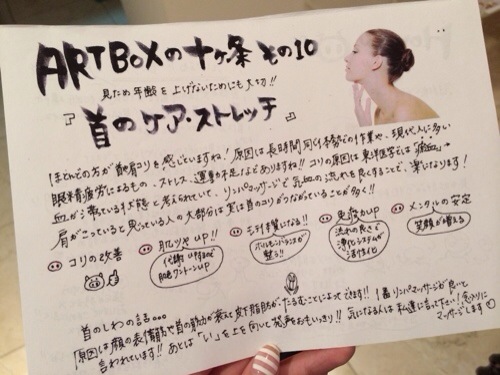 ARTBOXの十ヶ条 その10
見ため年齢を上げないためにも大切!!
『首のケア・ストレッチ』
ほとんどの方が首肩コリも感じていますね! 原因は長時間同じ姿勢での作業や、現代人に多い
眼精疲労によるもの、ストレス、運動不足などありますね!! コリの原因は東洋医学では
血が滞っている状態と考えられていて、リンパマッサージで血の流れを良くすることで、楽になります!
肩がこっていると思っている人の大部分は実は首のコリがつながっていることが多く!!
コリの改善
肌ツヤUP!!
代謝UPするので
肌色ワントーンUP
毛質が良くなる!!
ホルモンバランスが
整う!!
免疫力UP
流れの良さで
浄化システムが
活性化
メンタルの安定
笑顔が増える
首のしわの話…。
原因は顔の表情筋や首の筋力が衰えて皮下脂肪がたるむことによってできます!! 1番リンパマッサージが良いと
言われています!! あとは「い」を上を向いて発声もおもいっきり!! 気になる人は私達に言って下さい!念入りに
マッサージします